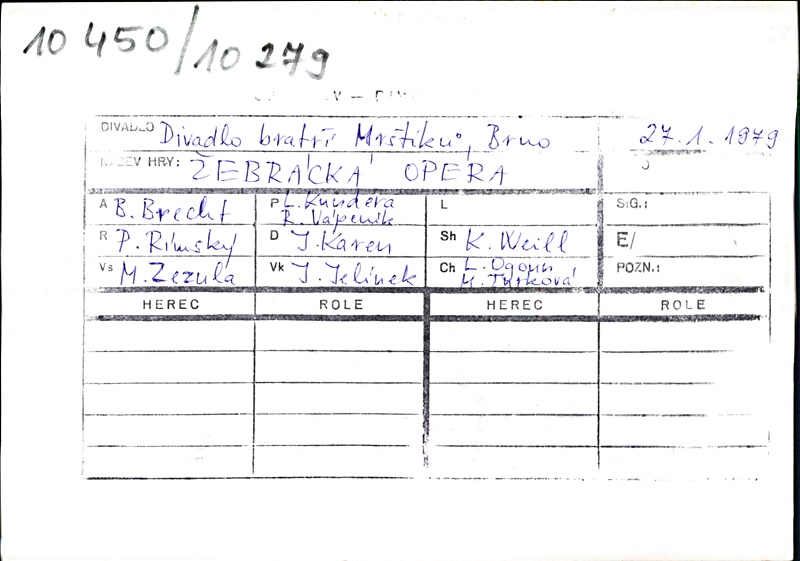 10 450/10 279
DIVADLO Divadlo bratří Mrštíků, Brno 27.1.1979
NÁZEV HRY: ŽEBRÁCKÁ OPERA
A B. Brecht P L. Kundera R. Vápeník L SIG.:
R P. Rímský D J. Karen Sh K. Weill E/
Vs M. Zezula Vk J. Jelínek Ch L. Ogoun M. Turková POZN.:
HEREC ROLE HEREC ROLE